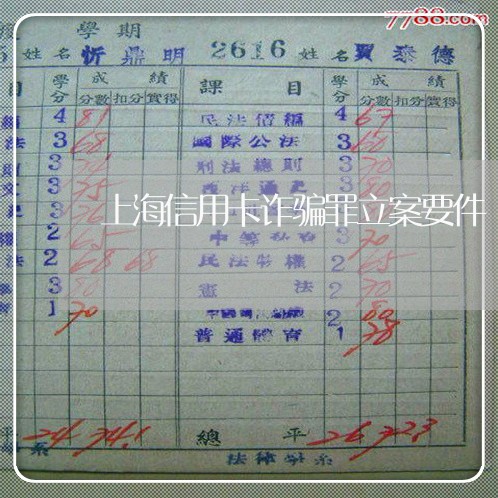 7788.com
學期
姓名 忻鼎明 2616 姓名 賈泰德
目 學分 成績 課目 學分 成績
分數 扣分 實得 分數 扣分 實得
4 81 民法債編 4 67
法 3 68 國際公法 3 60
3 刑法總則 3 70
3 75 3 80
3 76
上海信用卡诈骗罪立案要件
2 65 3 70
法 2 68 68 民法物權 2 65
3 80 憲法 2 70
1 70 2 80
普通體育 1 78
平 24 74.1 總平 26 72.3
系 法律學系